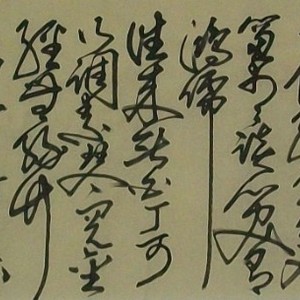 簾青談笑有
鴻儒
往來無白丁可
以調素琴閱金
經無絲竹